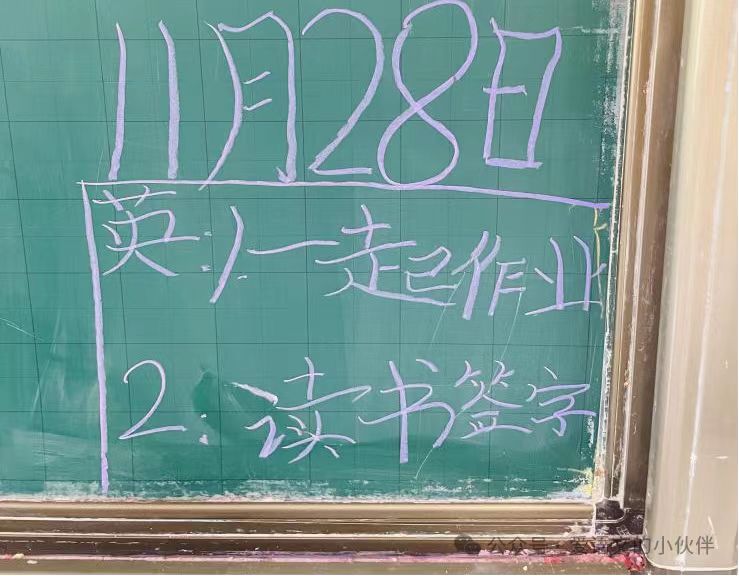 11月28日
英:1.一起作业
2.读书签字
公众号 · 的小伙伴